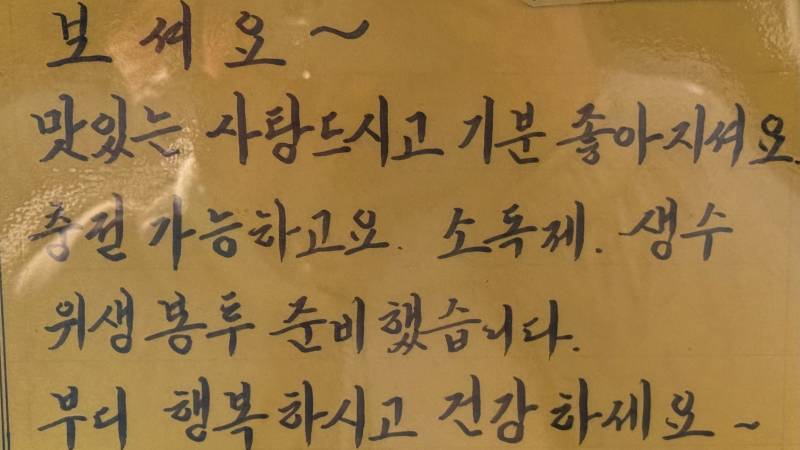 보셔요~
맛있는 사탕드시고 기분 좋아지셔요.
충전 가능하고요. 소독제. 생수
위생봉투 준비했습니다.
부디 행복하시고 건강하세요~